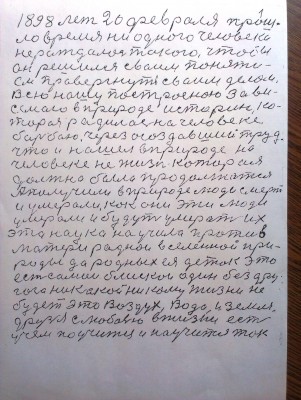 1898 лет 20 февраля прош-
ло время ни одного человека
не рождалося такого, чтобы
он решился своим поняти-
ем правергнути своим делом
Всю нашу построеною Зави-
симаю в природе историю, ко-
торая родилась на человеке
борбаю, через создавший труд,
что и нашел в природе на
человеке не жизн которая
должна была продолжатся
А получили в природе люди смерт
и умерали, как они эти люди
умерали и будут умерат их
эта наука научила против
матери родной вселенной при-
роды да родных ея деток Это
ест самии близкои один без дру-
гога никакой никому жизни не
будет это Воздух, Вода, и земля,
друзя с любовю в жизни ест
чем поучится и научится ток